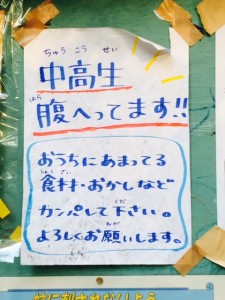 ちゅう こう せい
中高生
はら
腹へってます!!
おうちにあまってる
しょくざい
食材・おかしなど
くだ
カンパして下さい。
ねが
よろしくお願いします。